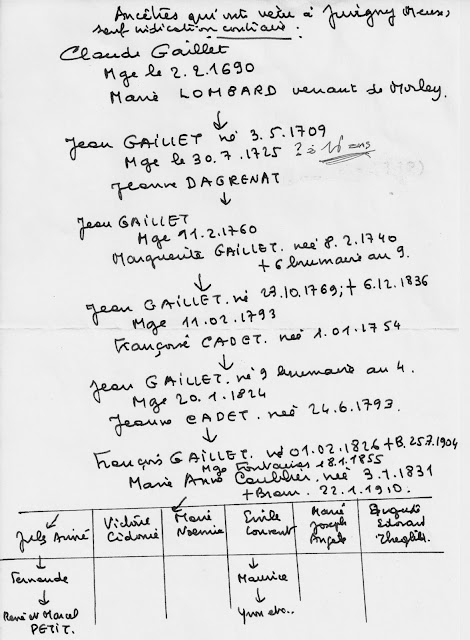 Ancêtres qui ont vécu à Juvigny Meuse,
sauf indication contraire :
Claude Gaillet
Mge le 2.2.1690
Marie LOMBARD venant de Morley.
Jean GAILLET né 3.5.1709
Mge le 30.7.1725 ? à 16 ans
Jeanne DAGRENAT
Jean GAILLET
Mge 11.2.1760
Marguerite GAILLET. née 8.2.1740
+ 6 brumaire an 9.
Jean GAILLET. né 29.10.1769; + 6.12.1836
Mge 11.02.1793
Françoise CADET. née 1.01.1754
Jean GAILLET. né 9 brumaire an 4.
Mge 20.1.1824
Jeanne CADET. née 24.6.1793.
François GAILLET. né 01.02.1826 + B. 25.7.1904
Mge 18.1.1855
Marie Anne née 3.1.1831
+ Brau. 22.1.1910.
Jules Aimé
Victoire Cidonie
Marie Noemie
Emile Laurent
Marie Joseph Angele
Auguste Edouard
Fernande
Maurice
René et Marcel
PETIT.
Yvon etc..